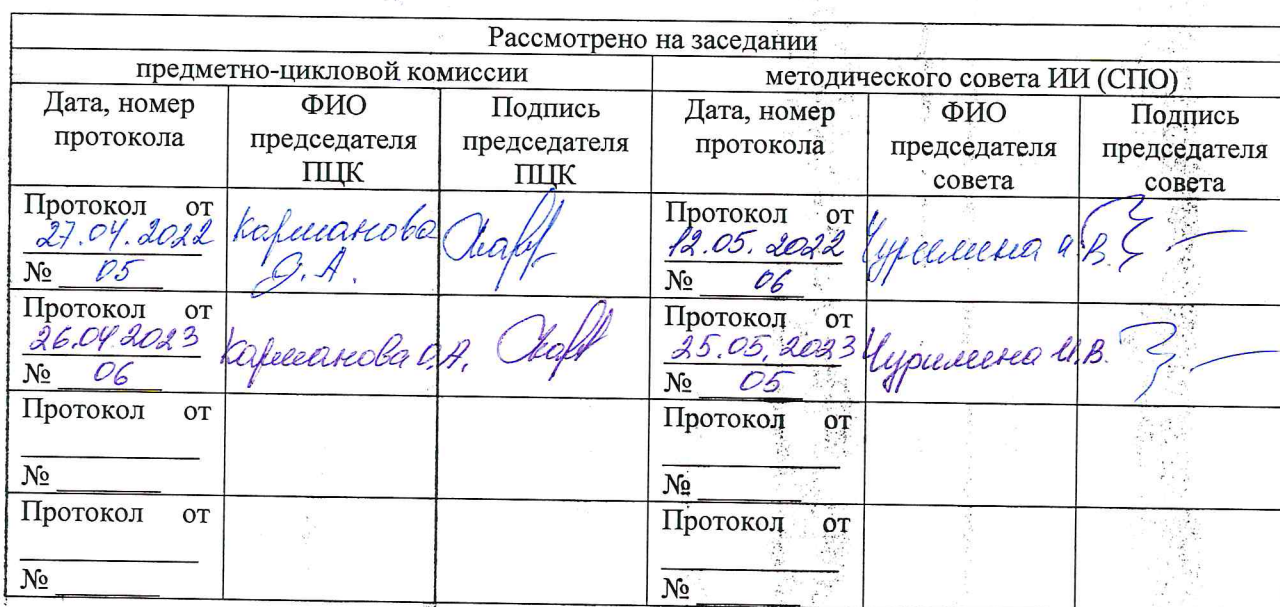 Рассмотрено на заседании
предметно-цикловой комиссии методического совета ИИ (СПО)
Дата, номер протокола ФИО председателя ПЦК Подпись председателя ПЦК Дата, номер протокола ФИО председателя совета Подпись председателя совета
Протокол от
27.04.2022
№ 05
Карманова
О.А.
Протокол от
12.05.2022
№ 06
И.В.
Протокол от
26.04.2023
№ 06
Карманова О.А.
Протокол от
25.05.2023
№ 05
Чурилина И.В.
Протокол от
№
Протокол от
№
Протокол от
№
Протокол от
№